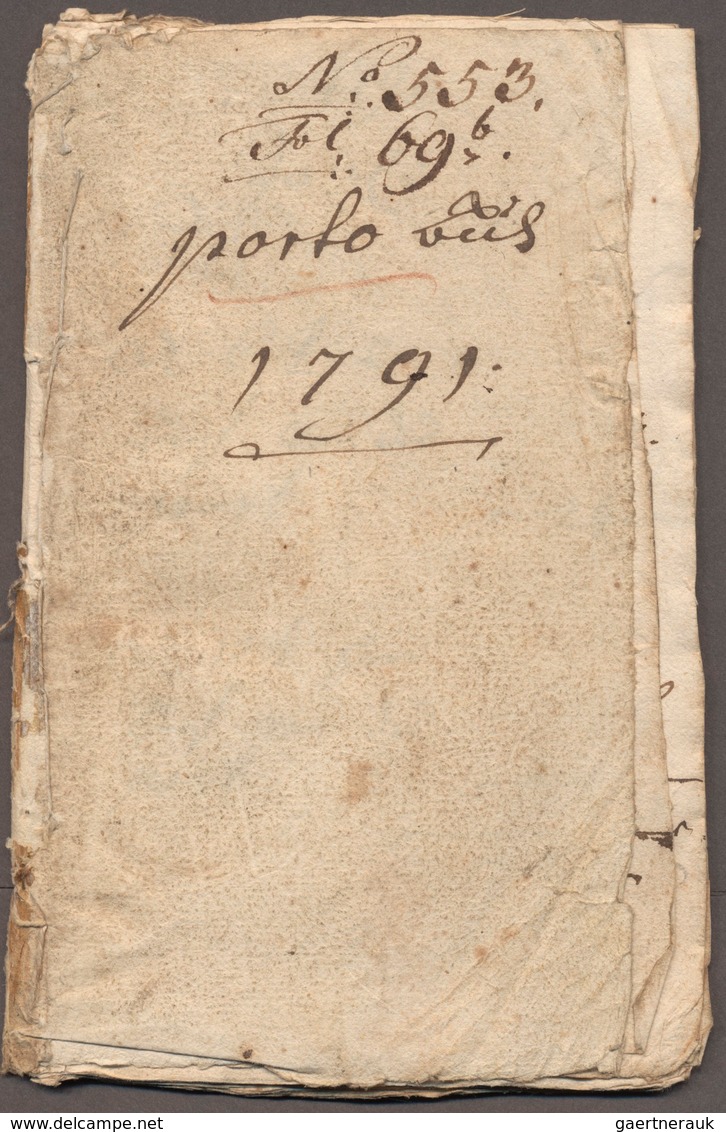 No. 553.
Fol: 69b.
porto buch
1791:
www.delcampe.net
gaertnerauk